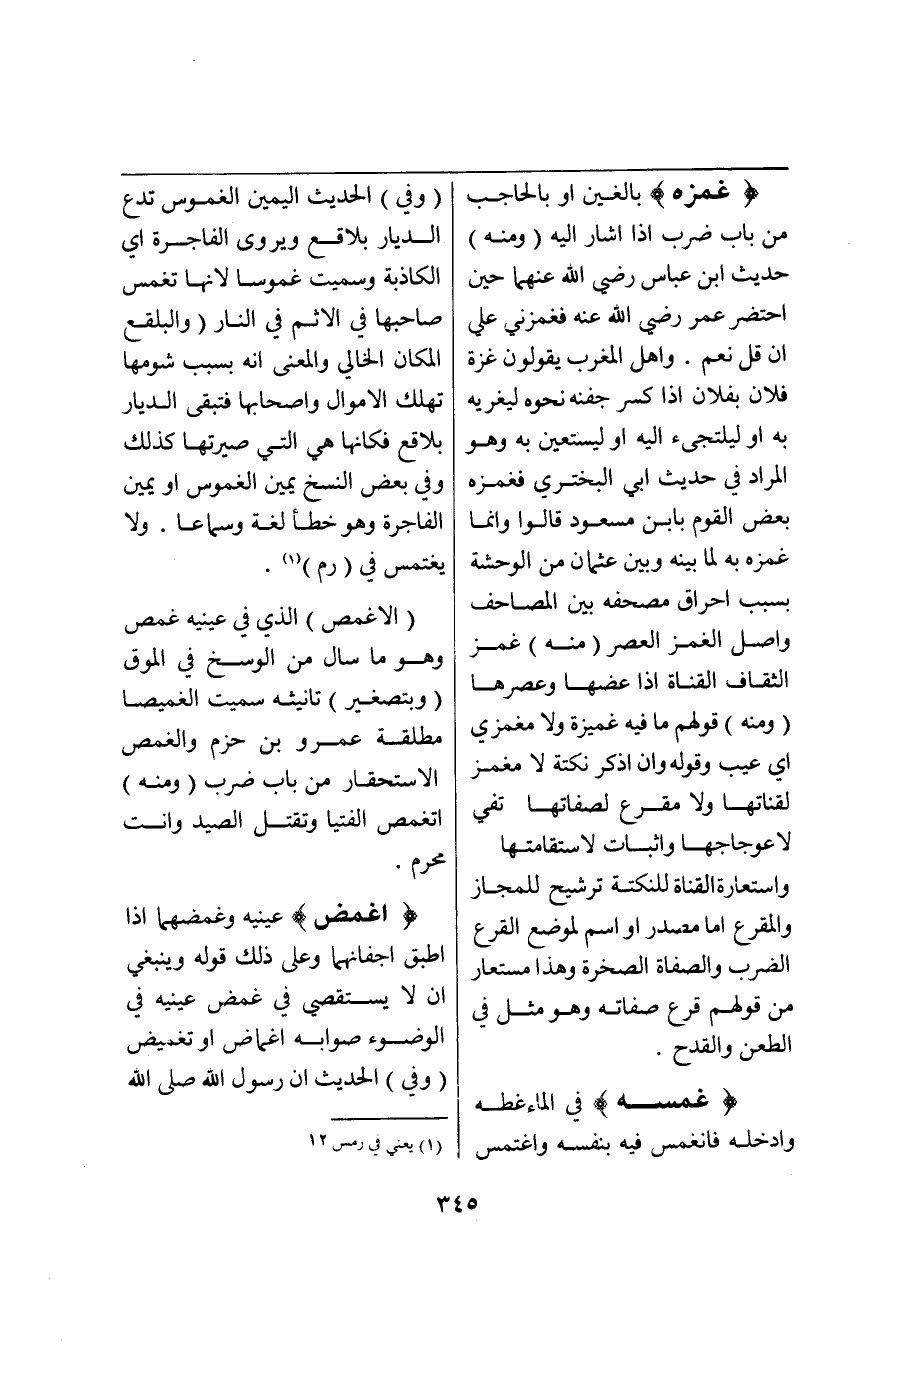 ﴿ غمزه ﴾ بالغين او بالحاجب
من باب ضرب اذا اشار اليه ( ومنه )
حديث ابن عباس رضي الله عنهما حين
احتضر عمر رضي الله عنه فغمزني علي
ان قل نعم . واهل المغرب يقولون غزة
فلان بفلان اذا كسر جفنه نحوه ليغريه
به او ليلتجىء اليه او ليستعين به وهو
المراد في حديث ابي البختري فغمزه
بعض القوم بابن مسعود قالوا وانما
غمزه به لما بينه وبين عثمان من الوحشة
بسبب احراق مصحفه بين المصاحف
واصل الغمز العصر ( منه ) غمز
الثقاف القناة اذا عضها وعصرها
( ومنه ) قولهم ما فيه غميزة ولا مغمزي
اي عيب وقوله وان اذكر نكتة لا مغمز
لقناتها ولا مقرع لصفاتها نفي
لاعوجاجها واثبات لاستقامتها
واستعارة القناة للنكتة ترشيح للمجاز
والمقرع اما مصدر او اسم لموضع القرع
الضرب والصفاة الصخرة وهذا مستعار
من قولهم قرع صفاته وهو مثل في
الطعن والقدح .
﴿ غمسه ﴾ في الماء غطه
وادخله فانغمس فيه بنفسه واغتمس
( وفي ) الحديث اليمين الغموس تدع
الديار بلاقع ويروى الفاجرة اي
الكاذبة وسميت غموسا لانها تغمس
صاحبها في الاثم في النار ( والبلقع
المكان الخالي والمعنى انه بسبب شومها
تهلك الاموال واصحابها فتبقى الديار
بلاقع فكانها هي التي صيرتها كذلك
وفي بعض النسخ يمين الغموس او يمين
الفاجرة وهو خطأ لغة وسماعا . ولا
يغتمس في ( رم )(١) .
( الاغمص ) الذي في عينيه غمص
وهو ما سال من الوسخ في الموق
( وبتصغير ) تانيثه سميت الغميصا
مطلقة عمرو بن حزم والغمص
الاستحقار من باب ضرب ( ومنه )
اتغمص الفتيا وتقتل الصيد وانت
محرم .
﴿ اغمض ﴾ عينيه وغمضهما اذا
اطبق اجفانهما وعلى ذلك قوله وينبغي
ان لا يستقصي في غمض عينيه في
الوضوء صوابه اغماض او تغميض
( وفي ) الحديث ان رسول الله صلى الله
(١) يعني في رمس ١٢
٣٤٥